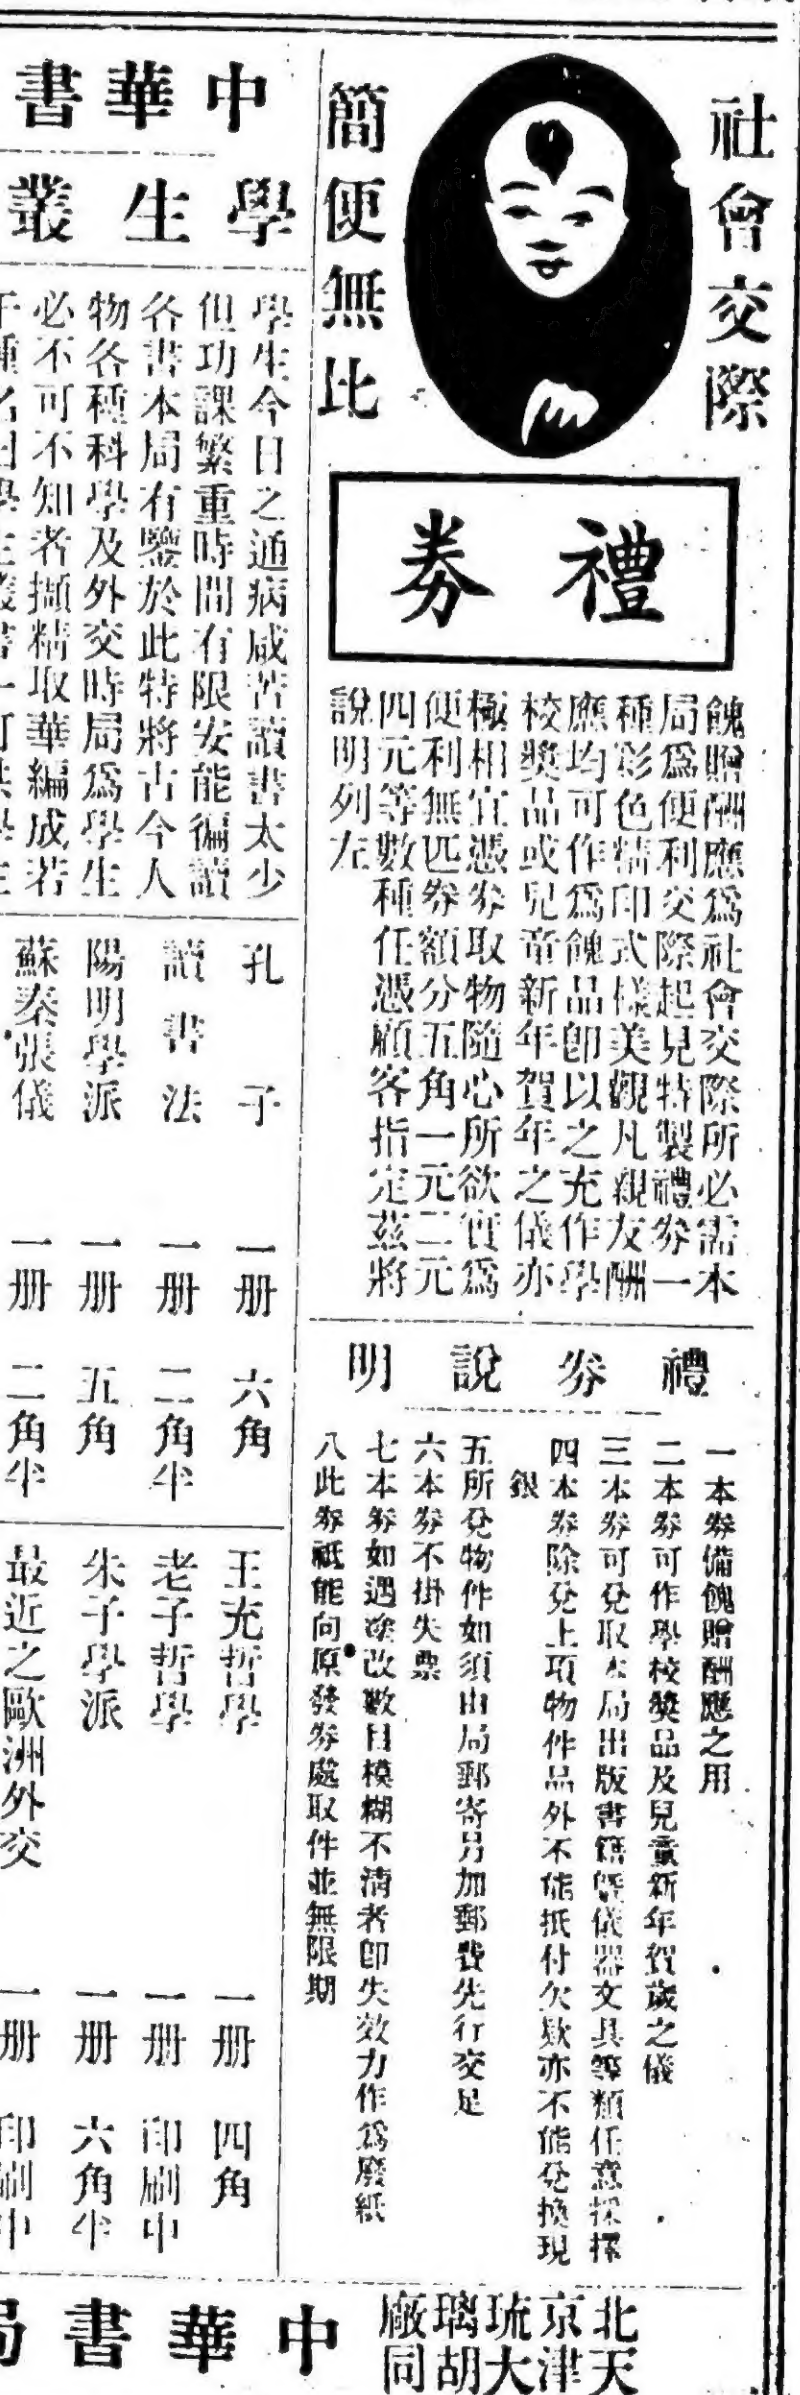 社會交際
簡便無比
禮券
餽贈酬應爲社會交際所必需本
局爲便利交際起見特製禮券一
種彩色精印式樣美觀凡親友酬
應均可作爲餽品卽以之充作學
校獎品或兒童新年賀年之儀亦
極相宜憑券取物隨心所欲實爲
便利無匹券額分五角一元二元
四元等數種任憑顧客指定茲將
說明列左
禮券說明
一本券備餽贈酬應之用
二本券可作學校獎品及兒童新年賀歲之儀
三本券可兌取本局出版書籍曁儀器文具等類任意採擇
四本券除兌上項物件品外不能抵付欠款亦不能兌換現
銀
五所兌物件如須由局郵寄另加郵費先行交足
六本券不掛失票
七本券如遇塗改數目模糊不淸者卽失效力作爲廢紙
八此券祇能向原發券處取件並無限期
中華書
學生叢
學生今日之通病咸苦讀書太少
但功課繁重時間有限安能徧讀
各書本局有鑒於此特將古今人
物各種科學及外交時局爲學生
必不可不知者擷精取華編成若
孔子 一册 六角
讀書法 一册 二角半
陽明學派 一册 五角
蘇秦張儀 一册 二角半
王充哲學 一册 四角
老子哲學 一册 印刷中
朱子學派 一册 六角半
最近之歐洲外交 一册 印刷中
北京琉璃廠
天津大胡同
中華書局